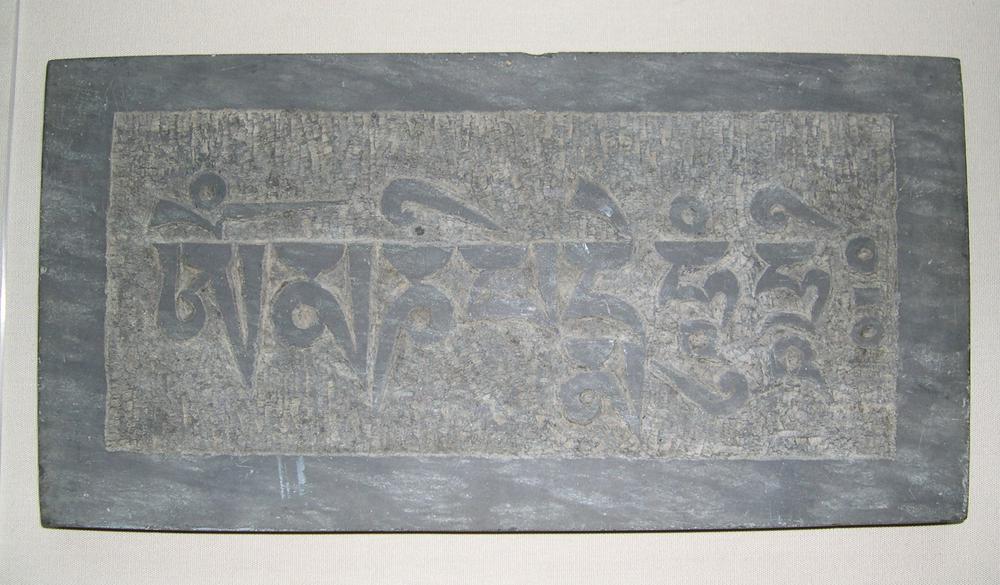 ཨོཾམཎིཔདྨེཧཱུཾཧྲཱིཿ